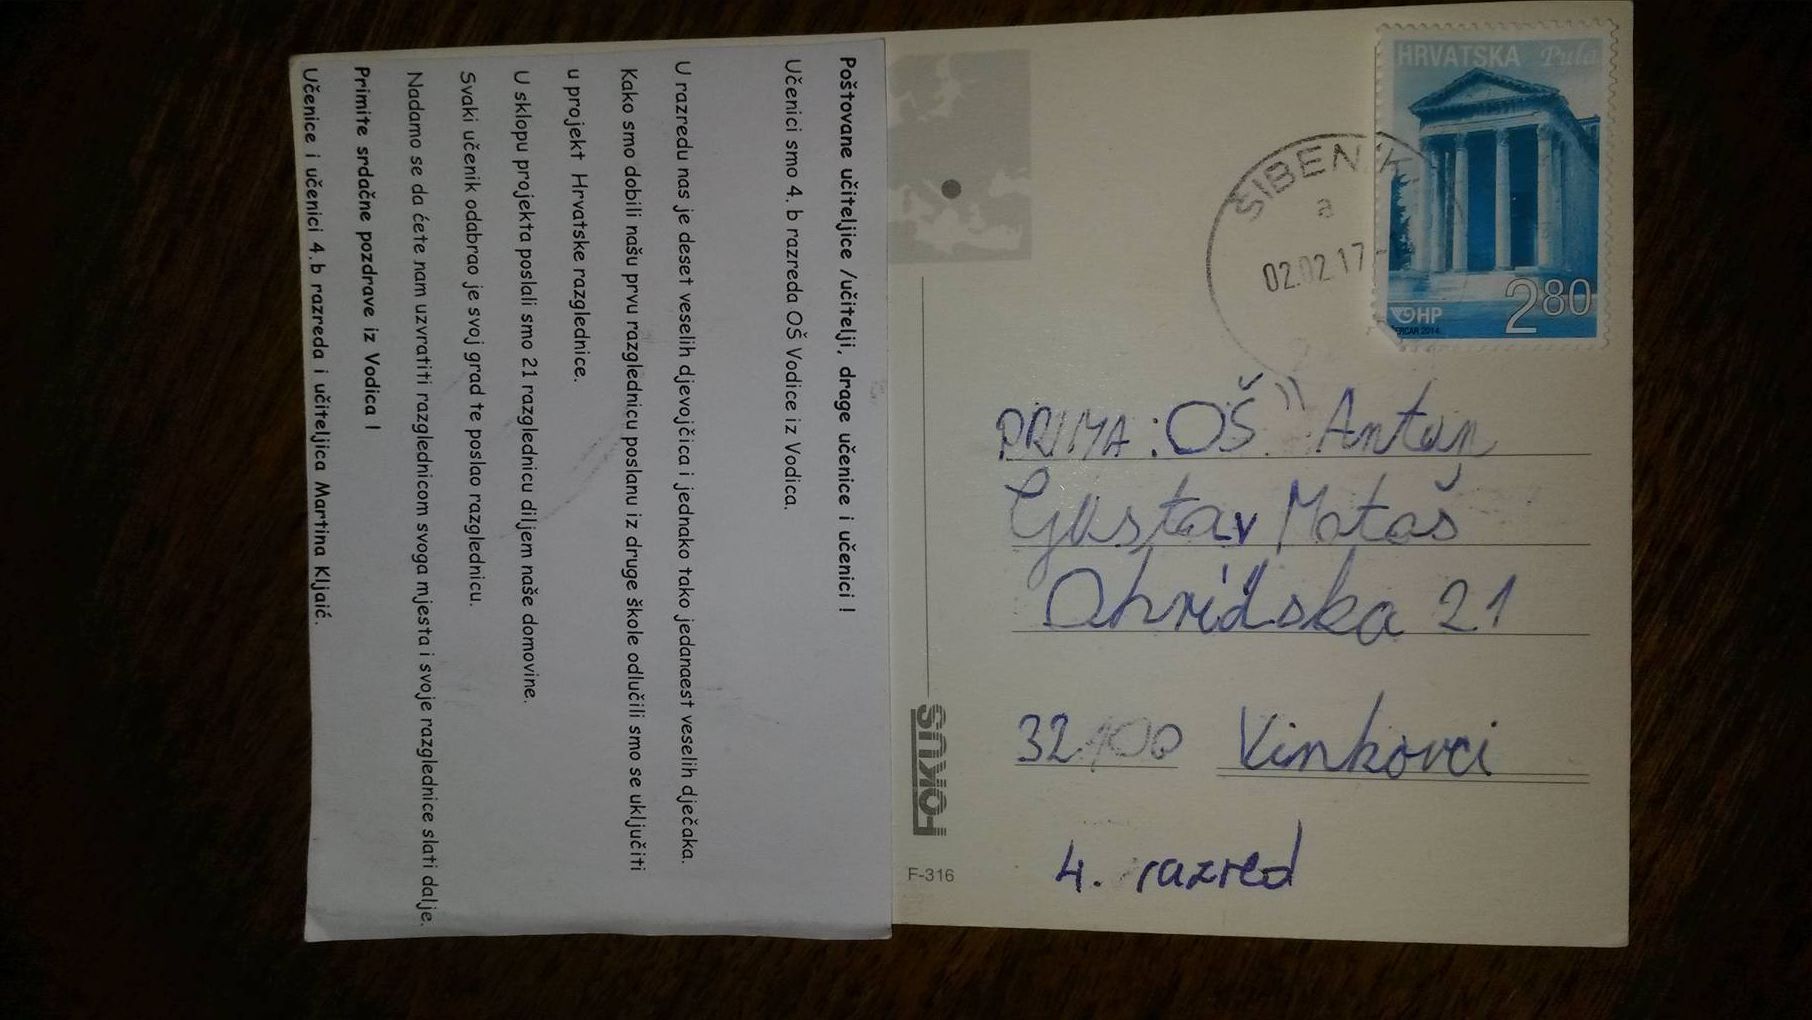 Poštovane učiteljice /učitelji, drage učenice i učenici !
Učenici smo 4. b razreda OŠ Vodice iz Vodica.
U razredu nas je deset veselih djevojčica i jednako tako jedanaest veselih dječaka.
Kako smo dobili našu prvu razglednicu poslanu iz druge škole odlučili smo se uključiti
u projekt Hrvatske razglednice.
U sklopu projekta poslali smo 21 razglednicu diljem naše domovine.
Svaki učenik odabrao je svoj grad te poslao razglednicu.
Nadamo se da ćete nam uzvratiti razglednicom svoga mjesta i svoje razglednice slati dalje.
Primite srdačne pozdrave iz Vodica !
Učenice i učenici 4.b razreda i učiteljica Martina Kljaić.
HRVATSKA Pula
280
HP
ŠIBENIK
a
02.02.17-
PRIMA: OŠ Antun
Gustav Matoš
Ohridska 21
32100 Vinkovci
4. razred
FOKUS
F-316